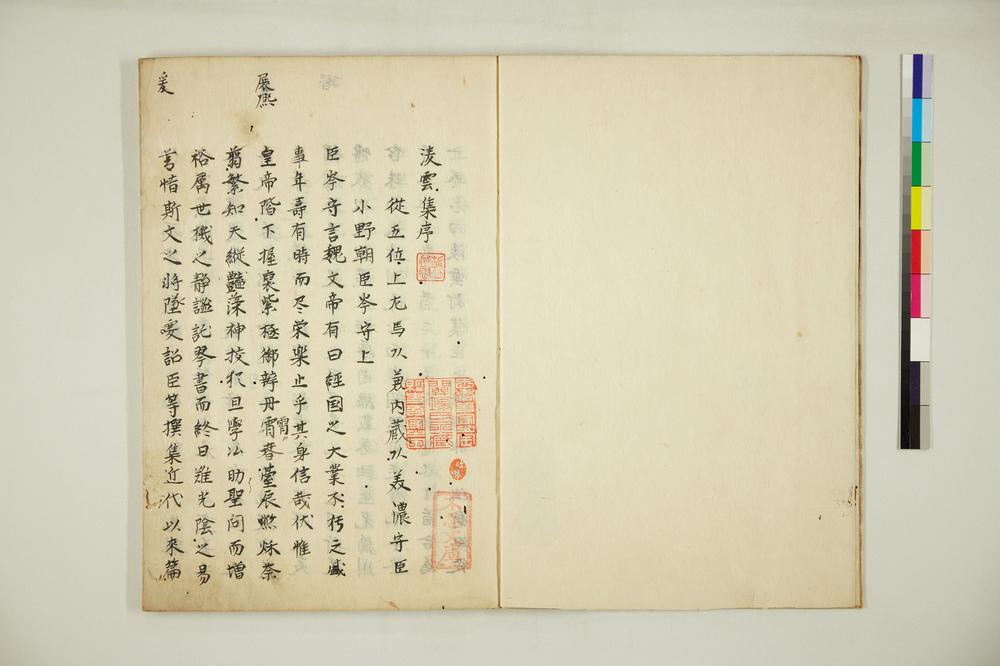 淩雲集序
従五位上左馬頭兼内蔵頭美濃守臣
小野朝臣岑守上
臣岑守言魏文帝有曰經国之大業不朽之盛
事年壽有時而尽栄楽止乎其身信哉伏惟
皇帝陛下握裒紫極御辨丹霄春臺辰熈秋荼
翦繁知天縱艶藻神授猶且學以助聖問而増
裕属世機之静謐託琴書而終日雖光陰之易
惜斯文之将墜爰詔臣等撰集近代以来篇
霄
展熈
爰